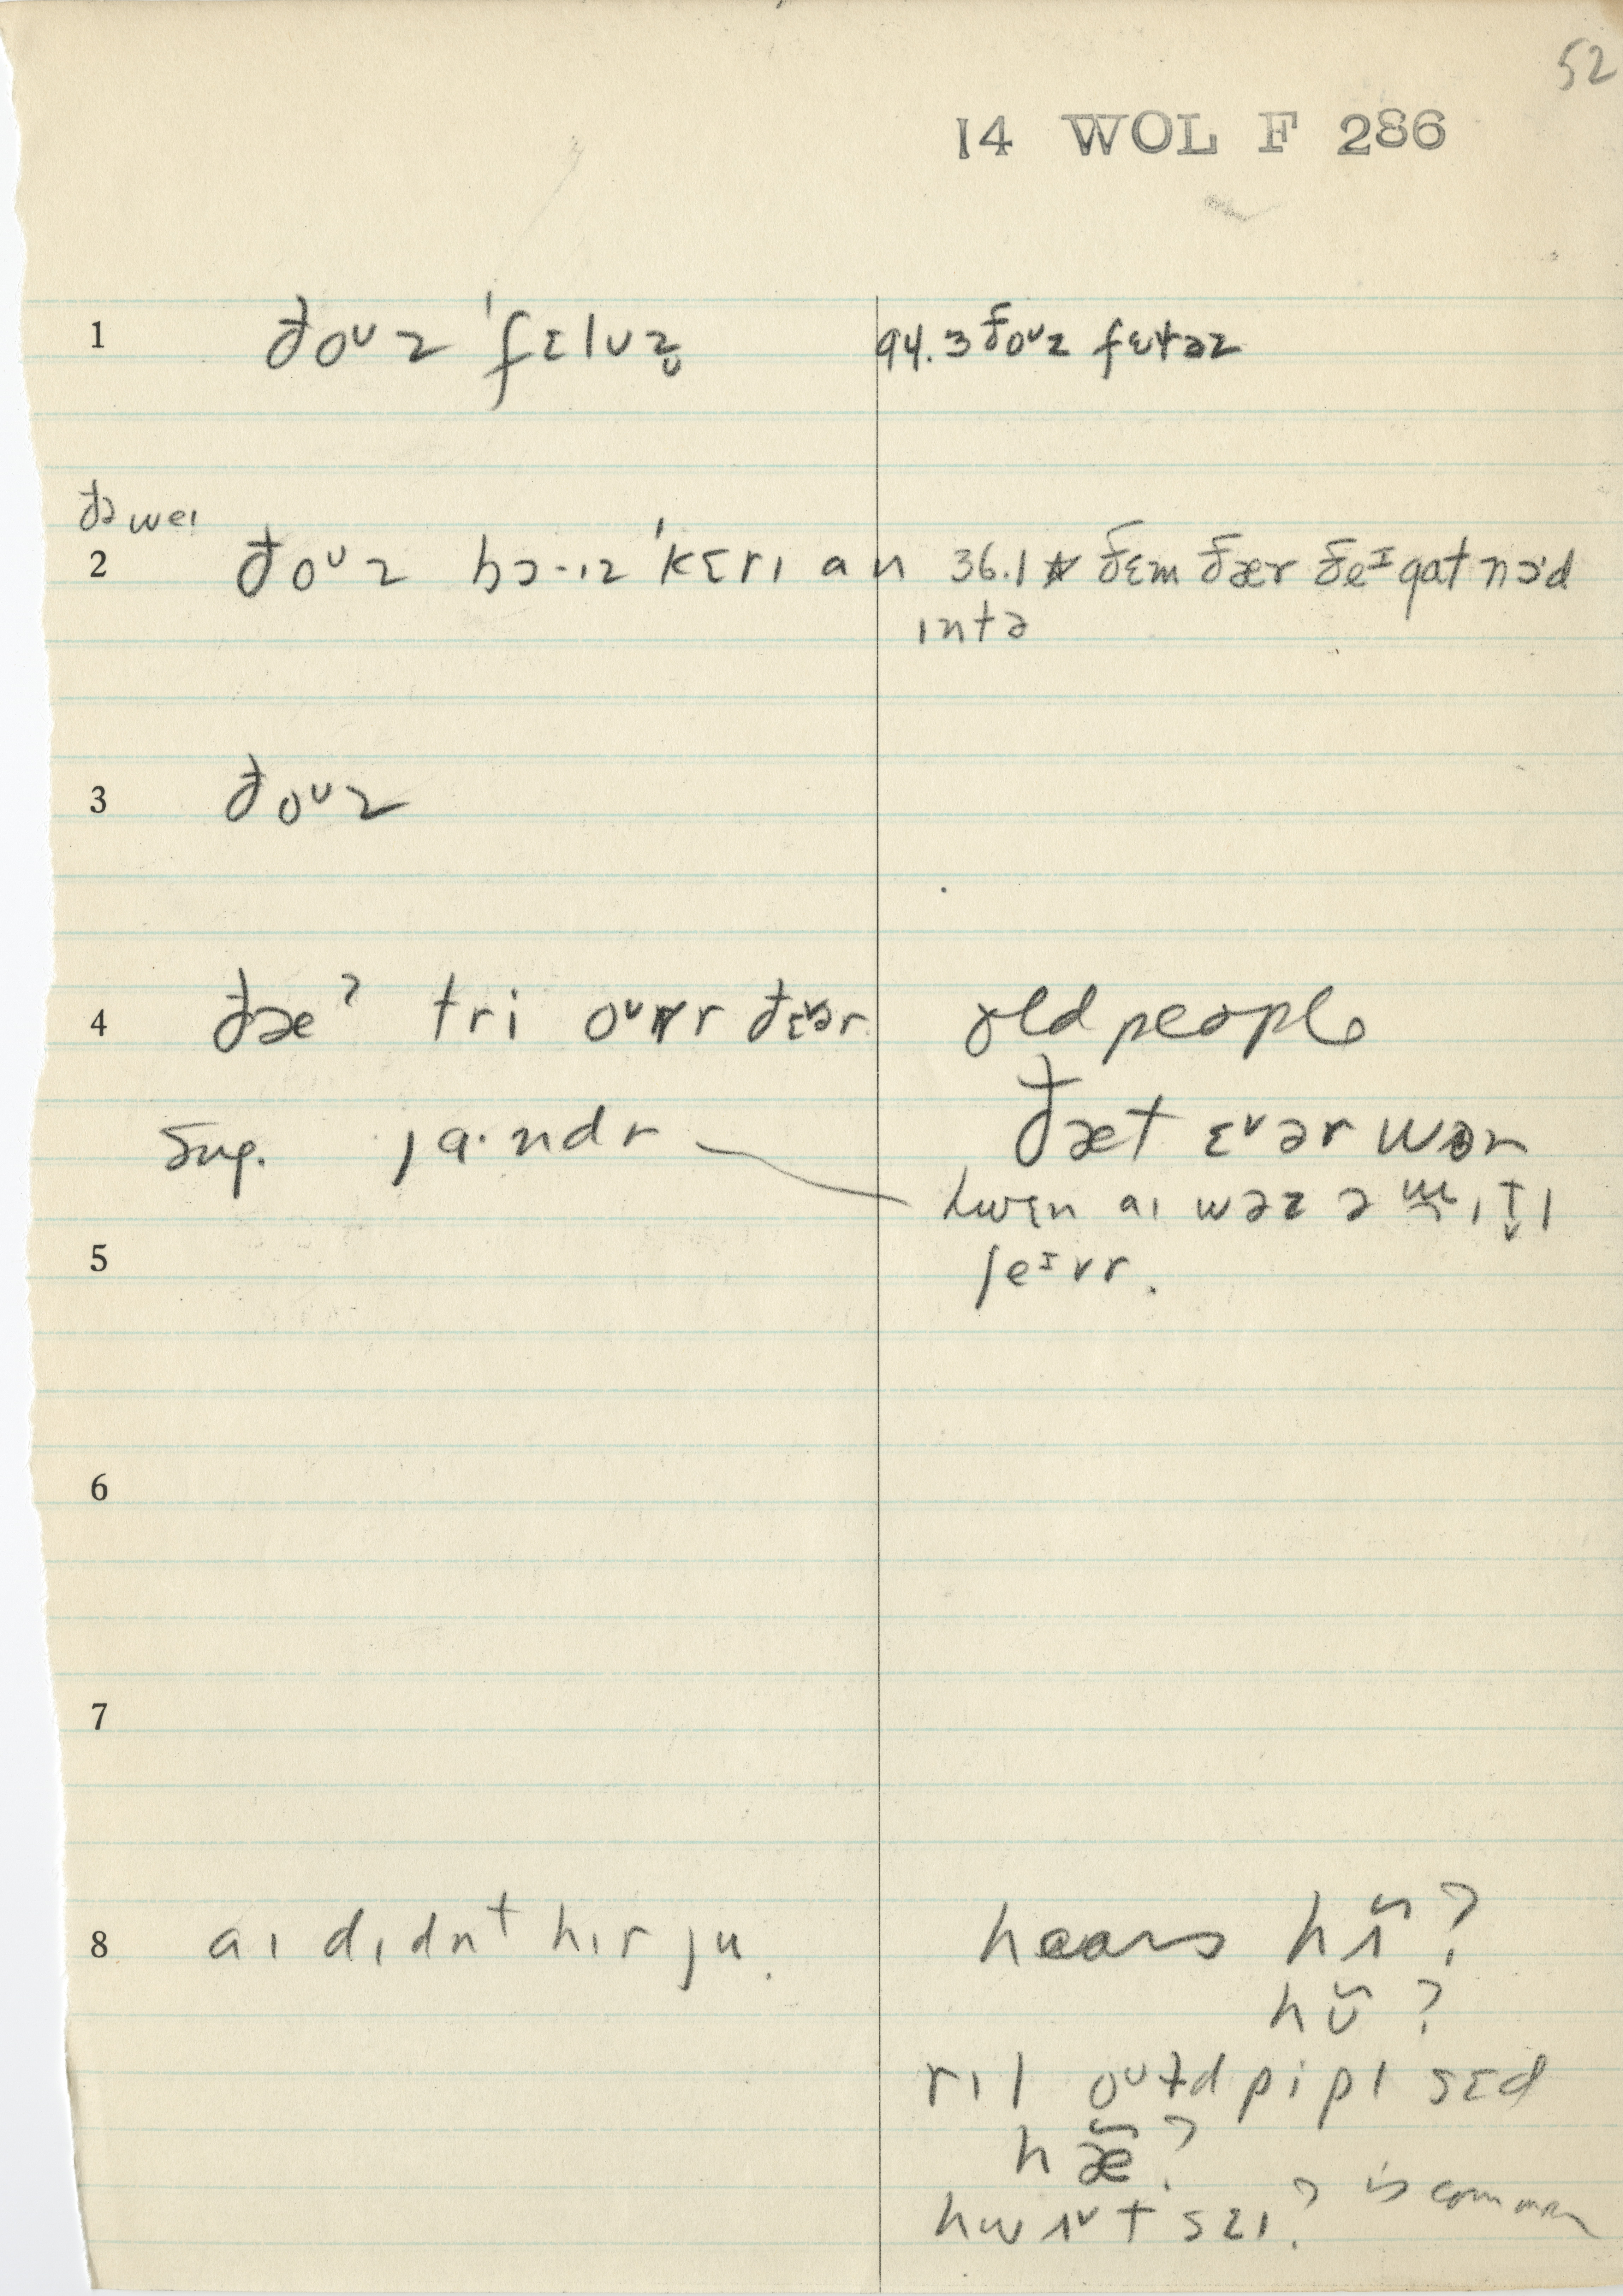 52
14 WOL F 286
1 ðoᴜz ˈfɛlʊz̬ 94.3 ðoᴜz fɛɫəz
ðə weɪ
2 ðoᴜz bɔ·ɪz ˈkɛrɪ an 36.1 ðɛm ðær ðeᴵ gat nɔɪd
ɪntə
3 ðoᴜz
4 ðæˀ tri oᴠr ðɛər old people
ðæt ɛᵛər wən
sug. ja·ndr
hwɛn aɪ wəz ə
5 feᴵvr.
6
7
8 aɪ dɪdnt hɪr ju. hears hʌ̃?
hʊ̃?
rɪl oᴜɫd pipl sɛd
hæ̃?
hwʌᵛt sɛɪ? is common